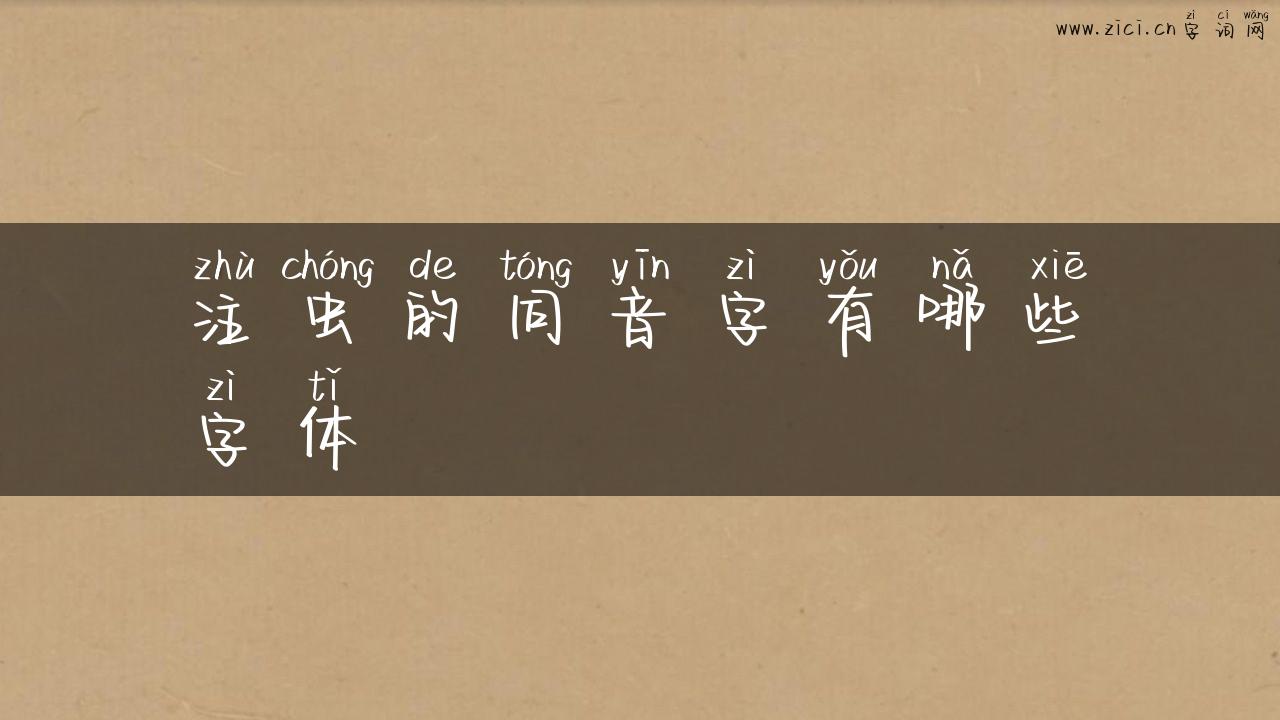 zì cí wǎng
www.zici.cn 字词网
zhù chóng de tóng yīn zì yǒu nǎ xiē
注虫的同音字有哪些
zì tǐ
字体